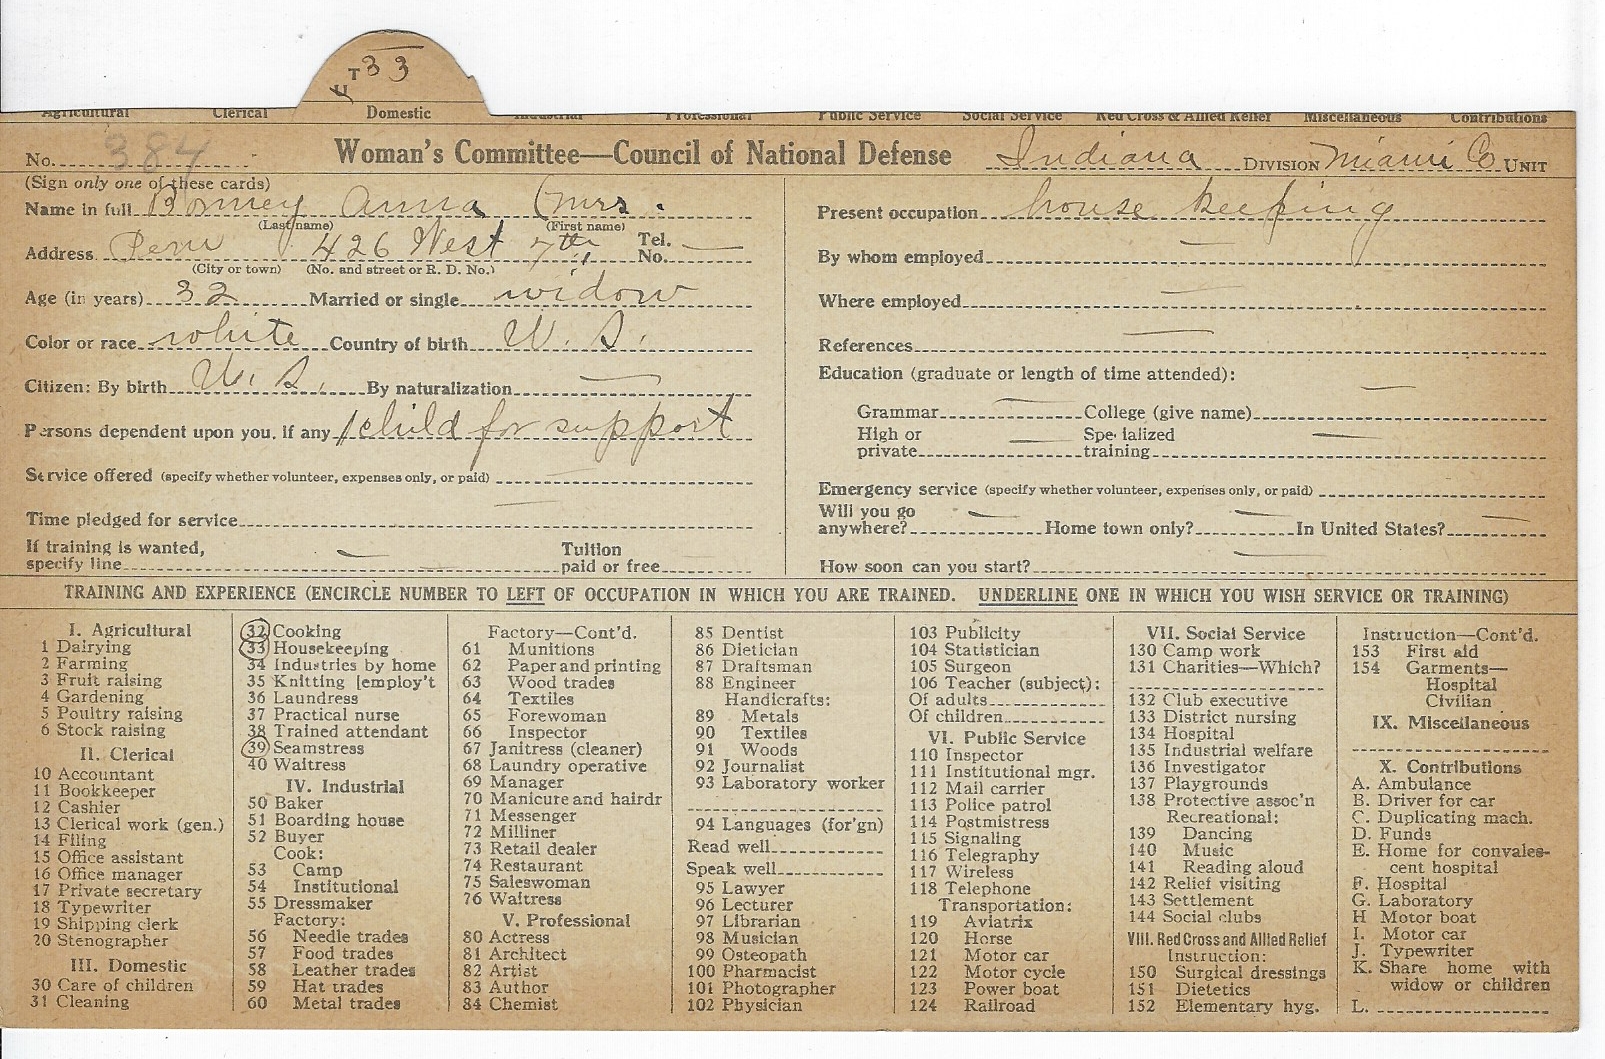 T 33
Agricultural Clerical Domestic Industrial Professional Public Service Social Service Red Cross & Allied Relief Miscellaneous Contributions
No. 384 Woman's Committee—Council of National Defense Indiana DIVISION Miami Co UNIT
(Sign only one of these cards)
Name in full Bonney Anna (Mrs.
(Last name) (First name)
Address Peru 426 West 7th Tel. No. —
(City or town) (No. and street or R. D. No.)
Age (in years) 32 Married or single widow
Color or race white Country of birth U. S.
Citizen: By birth U. S. By naturalization —
Persons dependent upon you, if any 1 child for support
Service offered (specify whether volunteer, expenses only, or paid) —
Time pledged for service —
If training is wanted, specify line — Tuition paid or free
Present occupation house keeping
By whom employed —
Where employed —
References —
Education (graduate or length of time attended): —
Grammar — College (give name)
High or private — Specialized training —
Emergency service (specify whether volunteer, expenses only, or paid)
Will you go anywhere? — Home town only? — In United States? —
How soon can you start? —
TRAINING AND EXPERIENCE (ENCIRCLE NUMBER TO LEFT OF OCCUPATION IN WHICH YOU ARE TRAINED. UNDERLINE ONE IN WHICH YOU WISH SERVICE OR TRAINING)
I. Agricultural
1 Dairying
2 Farming
3 Fruit raising
4 Gardening
5 Poultry raising
6 Stock raising
II. Clerical
10 Accountant
11 Bookkeeper
12 Cashier
13 Clerical work (gen.)
14 Filing
15 Office assistant
16 Office manager
17 Private secretary
18 Typewriter
19 Shipping clerk
20 Stenographer
III. Domestic
30 Care of children
31 Cleaning
32 Cooking
33 Housekeeping
34 Industries by home
35 Knitting [employ't
36 Laundress
37 Practical nurse
38 Trained attendant
39 Seamstress
40 Waitress
IV. Industrial
50 Baker
51 Boarding house
52 Buyer
Cook:
53 Camp
54 Institutional
55 Dressmaker
Factory:
56 Needle trades
57 Food trades
58 Leather trades
59 Hat trades
60 Metal trades
Factory—Cont'd.
61 Munitions
62 Paper and printing
63 Wood trades
64 Textiles
65 Forewoman
66 Inspector
67 Janitress (cleaner)
68 Laundry operative
69 Manager
70 Manicure and hairdr
71 Messenger
72 Milliner
73 Retail dealer
74 Restaurant
75 Saleswoman
76 Waitress
V. Professional
80 Actress
81 Architect
82 Artist
83 Author
84 Chemist
85 Dentist
86 Dietician
87 Draftsman
88 Engineer
Handicrafts:
89 Metals
90 Textiles
91 Woods
92 Journalist
93 Laboratory worker
94 Languages (for'gn)
Read well
Speak well
95 Lawyer
96 Lecturer
97 Librarian
98 Musician
99 Osteopath
100 Pharmacist
101 Photographer
102 Physician
103 Publicity
104 Statistician
105 Surgeon
106 Teacher (subject):
Of adults
Of children
VI. Public Service
110 Inspector
111 Institutional mgr.
112 Mail carrier
113 Police patrol
114 Postmistress
115 Signaling
116 Telegraphy
117 Wireless
118 Telephone
Transportation:
119 Aviatrix
120 Horse
121 Motor car
122 Motor cycle
123 Power boat
124 Railroad
VII. Social Service
130 Camp work
131 Charities—Which?
132 Club executive
133 District nursing
134 Hospital
135 Industrial welfare
136 Investigator
137 Playgrounds
138 Protective assoc'n
Recreational:
139 Dancing
140 Music
141 Reading aloud
142 Relief visiting
143 Settlement
144 Social clubs
VIII. Red Cross and Allied Relief
Instruction:
150 Surgical dressings
151 Dietetics
152 Elementary hyg.
Instruction—Cont'd.
153 First aid
154 Garments—
Hospital
Civilian
IX. Miscellaneous
X. Contributions
A. Ambulance
B. Driver for car
C. Duplicating mach.
D. Funds
E. Home for convales-
cent hospital
F. Hospital
G. Laboratory
H Motor boat
I. Motor car
J. Typewriter
K. Share home with
widow or children
L.